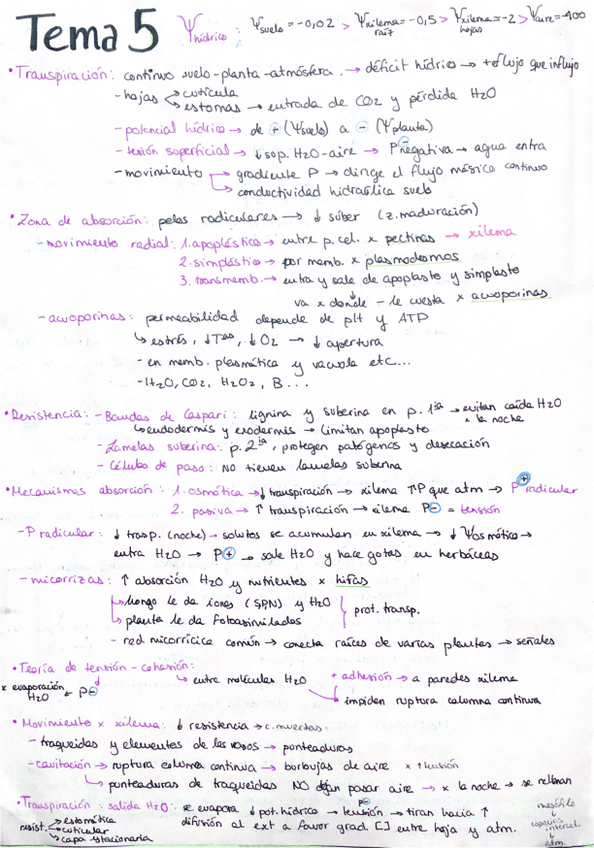 Tema 5 Ψhídrico: Ψsuelo = -0,02 > Ψxilema raíz = -0,5 > Ψxilema hojas = -2 > Ψaire = -400
• Transpiración: continuo suelo-planta-atmósfera. → déficit hídrico → + eflujo que influjo
- hojas → cutícula
→ estomas → entrada de CO2 y pérdida H2O
- potencial hídrico → de + (Ψsuelo) a - (Ψplanta)
- tensión superficial → ↓ sop. H2O-aire → P negativa → agua entra
- movimiento → gradiente P → dirige el flujo másico continuo
→ conductividad hidraúlica suelo
• Zona de absorción: pelos radiculares → ↓ súber (z. maduración)
- movimiento radial: 1. apoplástico → entre p. cel. x pectinas → xilema
2. simplástico → por memb. x plasmodesmos
3. transmemb. → entra y sale de apoplasto y simplasto
va x donde - le cuesta x acuoporinas
- acuoporinas: permeabilidad depende de pH y ATP
↳ estrés, ↓Tas, ↓O2 → ↓ apertura
- en memb. plasmática y vacuola etc...
- H2O, CO2, H2O2, B...
• Resistencia: - Bandas de Caspari: lignina y suberina en p. 1ia → evitan caída H2O
x la noche
↳ endodermis y exodermis → limitan apoplasto
- Lamelas suberina: p. 2ia, protegen patógenos y desecación
- Células de paso: NO tienen lamelas suberina
• Mecanismos absorción: 1. osmótica → ↓ transpiración → xilema ↑P que atm → P + radicular
2. pasiva → ↑ transpiración → xilema P - = tensión
- P radicular: ↓ trasp. (noche) → solutos se acumulan en xilema → ↓ Ψosmótico →
entra H2O → P + → sale H2O y hace gotas en herbáceas
- micorrizas: ↑ absorción H2O y nutrientes x hifas
↳ hongo le da iones (SPN) y H2O
↳ planta le da fotoasimilados
prot. transp.
- red micorrícica común → conecta raíces de varias plantas → señales
• Teoría de tensión - cohesión:
x evaporación H2O ← P -
↳ entre moléculas H2O + adhesión → a paredes xilema
impiden ruptura columna continua
• Movimiento x xilema: ↓ resistencia → c. muertas.
- traqueidas y elementos de los vasos → punteaduras
- cavitación → ruptura columna continua → burbujas de aire x ↑ tensión
↳ punteaduras de traqueidas NO dejan pasar aire → x la noche → se rellenan
• Transpiración: salida H2O: se evapora ↓ pot. hídrico → tensión → tiran hacia ↑
P -
difusión al ext a favor grad. [] entre hoja y atm.
resist. → estomática
→ cuticular
→ capa estacionaria
mesófilo
↓
espacios intercel.
↓
atm.